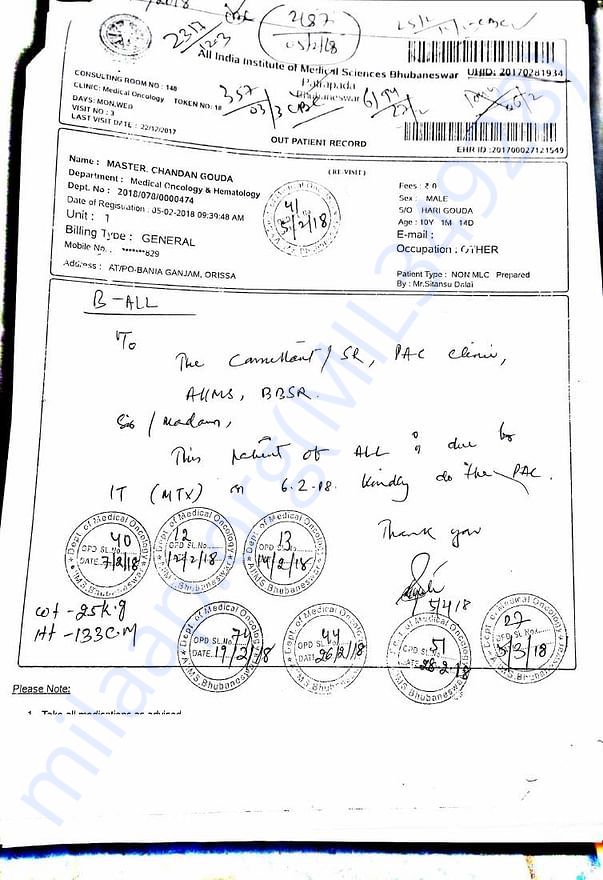 2317
123
2187
05/2/18
All India Institute of Medical Sciences Bhubaneswar
UHID: 20170281934
Patrapada
Bhubaneswar
CONSULTING ROOM NO : 148
CLINIC: Medical Oncology TOKEN NO: 18
DAYS: MON,WED
VISIT NO : 3
LAST VISIT DATE : 22/12/2017
357
03/3
OUT PATIENT RECORD
EHR ID :201700027121549
(RE-VISIT)
Name : MASTER. CHANDAN GOUDA
Department : Medical Oncology & Hematology
Dept. No : 2018/078/0000474
Date of Registration : 05-02-2018 09:39:48 AM
Unit : 1
Billing Type : GENERAL
Mobile No. : *******629
Address : AT/PO-BANIA GANJAM, ORISSA
41
5/2/18
Fees : ₹ 0
Sex : MALE
S/O HARI GOUDA
Age : 10Y 1M 14D
E-mail :
Occupation : OTHER
Patient Type : NON MLC Prepared
By : Mr.Sitansu Dalai
B-ALL
To
The Consultant / SR, PAC Clinic,
AIIMS, BBSR.
Sir / Madam,
This patient of ALL is due for
IT (MTX) on 6.2.18. Kindly do the PAC.
Thank you
Dept. of Medical Oncology
OPD SL.No. 40
DATE 7/2/18
AIIMS, Bhubaneswar
Dept. of Medical Oncology
OPD SL.No. 12
12/2/18
AIIMS, Bhubaneswar
Dept. of Medical Oncology
OPD SL.No. 13
14/2/18
AIIMS, Bhubaneswar
wt - 25kg
Ht - 133 C.M
Dept. of Medical Oncology
OPD SL.No. 74
DATE. 19/2/18
AIIMS, Bhubaneswar
Dept. of Medical Oncology
OPD SL.No. 44
DATE 26/2/18
AIIMS, Bhubaneswar
Dept. of Medical Oncology
OPD SL.No. 51
DATE 28.2.18
AIIMS, Bhubaneswar
Dept. of Medical Oncology
OPD SL.No. 27
5/3/18
AIIMS, Bhubaneswar
Please Note:
1. Take all medications as advised